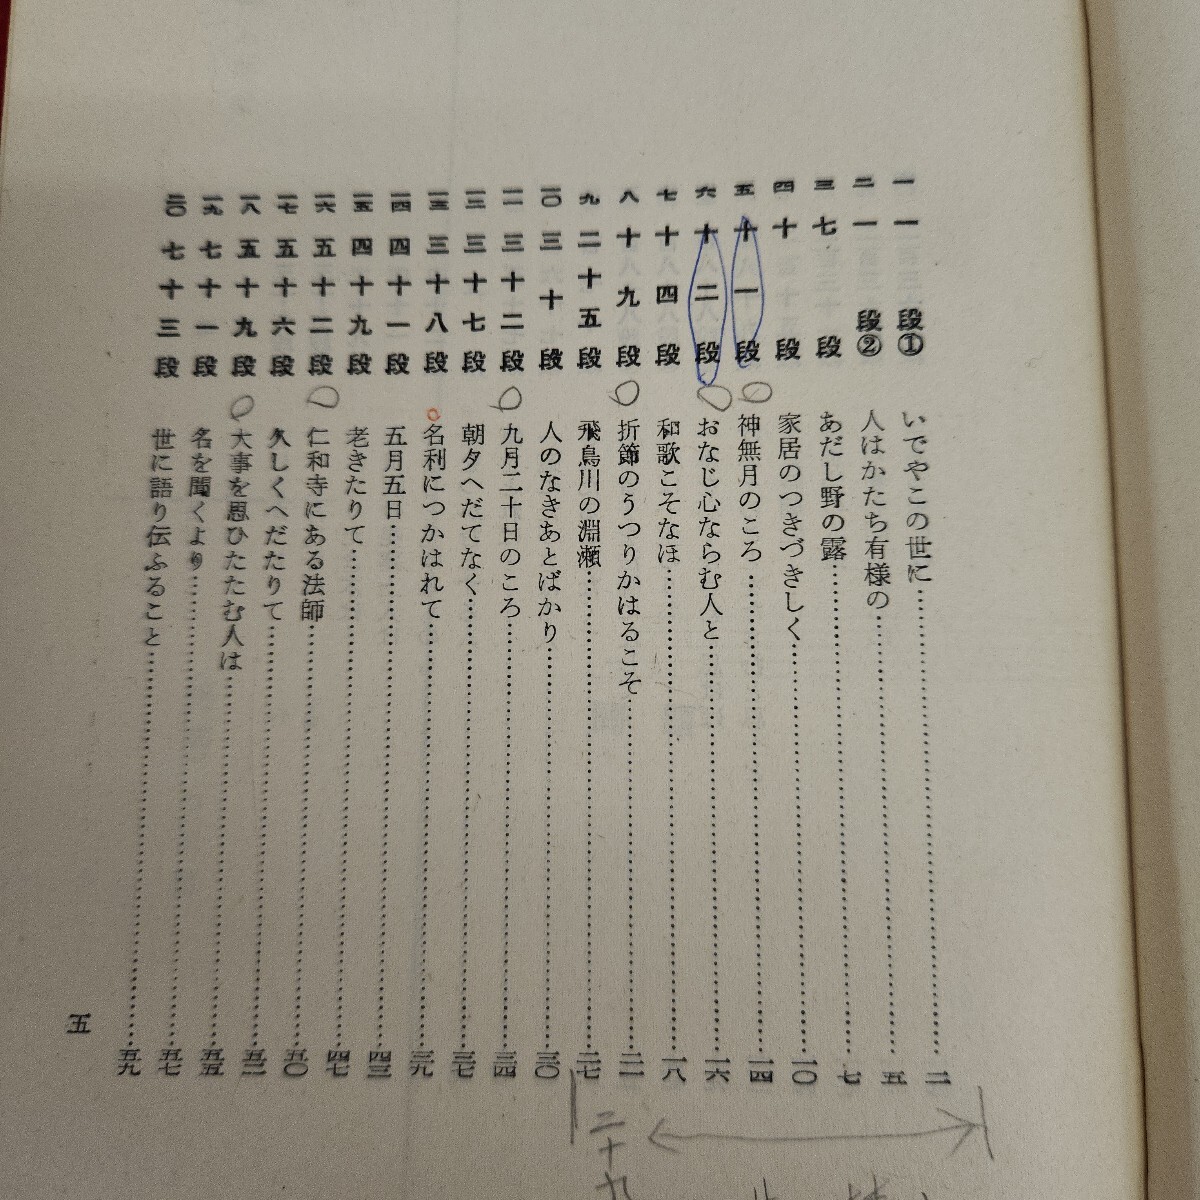 一 一段① いでやこの世に……………二
二 一段② 人はかたち有様の……………五
三 七段 あだし野の露……………七
四 十段 家居のつきづきしく……………一〇
五 十一段 神無月のころ……………一四
六 十二段 おなじ心ならむ人と……………一六
七 十四段 和歌こそなほ……………一八
八 十九段 折節のうつりかはるこそ……………二一
九 二十五段 飛鳥川の淵瀬……………二七
一〇 三十段 人のなきあとばかり……………三〇
一一 三十二段 九月二十日のころ……………三四
一二 三十七段 朝夕へだてなく……………三七
一三 三十八段 名利につかはれて……………三九
一四 四十一段 五月五日……………四三
一五 四十九段 老きたりて……………四七
一六 五十二段 仁和寺にある法師……………五〇
一七 五十六段 久しくへだたりて……………五三
一八 五十九段 大事を思ひたたむ人は……………五五
一九 七十一段 名を聞くより……………五七
二〇 七十三段 世に語り伝ふること……………五九
五
二十九